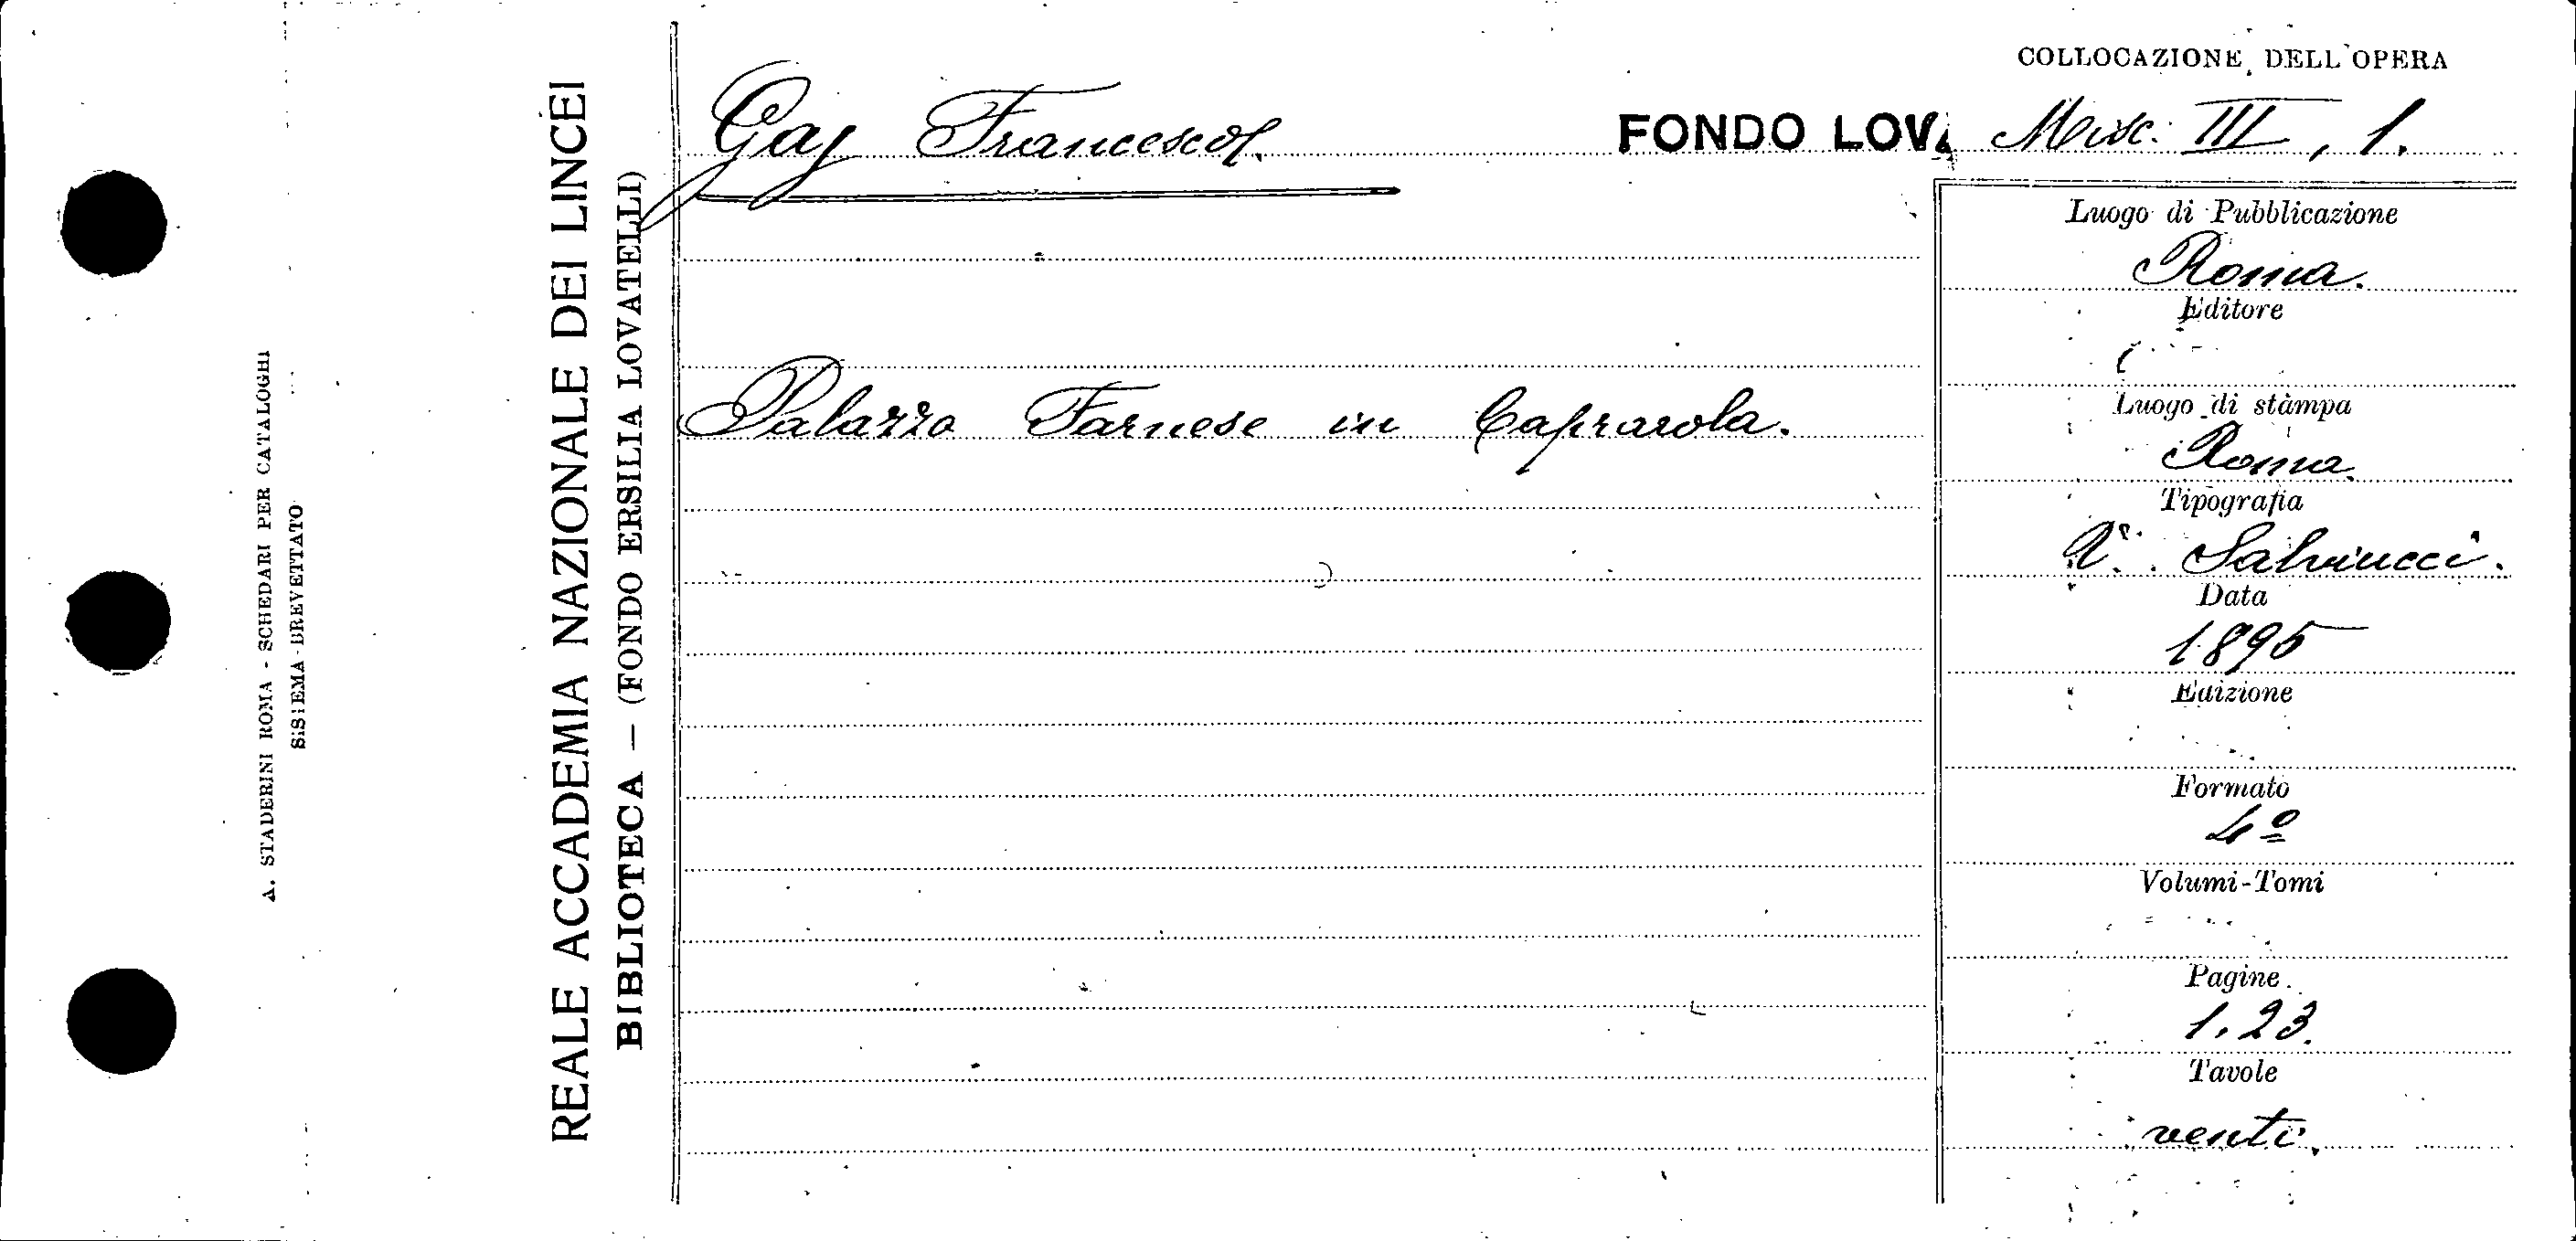 A. STADERINI ROMA - SCHEDARI PER CATALOGHI
SISTEMA BREVETTATO
REALE ACCADEMIA NAZIONALE DEI LINCEI
BIBLIOTECA — (FONDO ERSILIA LOVATELLI)
COLLOCAZIONE DELL'OPERA
Gaj Francesco.
FONDO LOVA Misc. III, 1.
Luogo di Pubblicazione
Roma.
Editore
Palazzo Farnese in Caprarola.
Luogo di stampa
Roma.
Tipografia
V. Salviucci.
Data
1895
Edizione
Formato
4º
Volumi-Tomi
Pagine
1.23.
Tavole
venti.